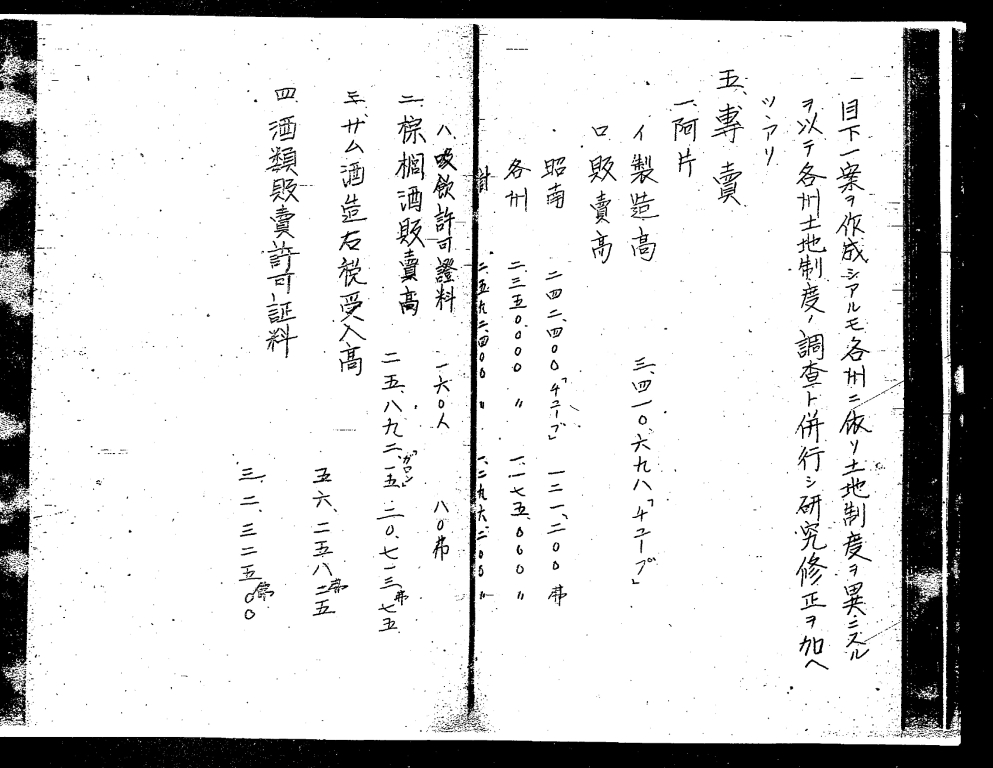 目下一案ヲ作成シアルモ各州ニ依リ土地制度ヲ異ニスル
ヲ以テ各州土地制度ノ調査ト併行シ研究修正ヲ加ヘ
ツヽアリ
五、専賣
一、阿片
イ 製造高 三、四一〇、六九八「チューブ」
ロ 販賣高
昭南 二四二、四〇〇「チューブ」 一二一、二〇〇弗
各州 二、三五〇、〇〇〇 〃 一、一七五、〇〇〇 〃
計 二、五九二、四〇〇 〃 一、二九六、二〇〇 〃
ハ 吸飲許可證料 一六〇人 八〇弗
二、棕櫚酒販賣高 二五、八九二・五「ガロン」 二〇、七一三弗七五
三、サム酒造石税受入高 五六、二五八弗二五
四 酒類販賣許可証料 三二、三二五弗〇〇